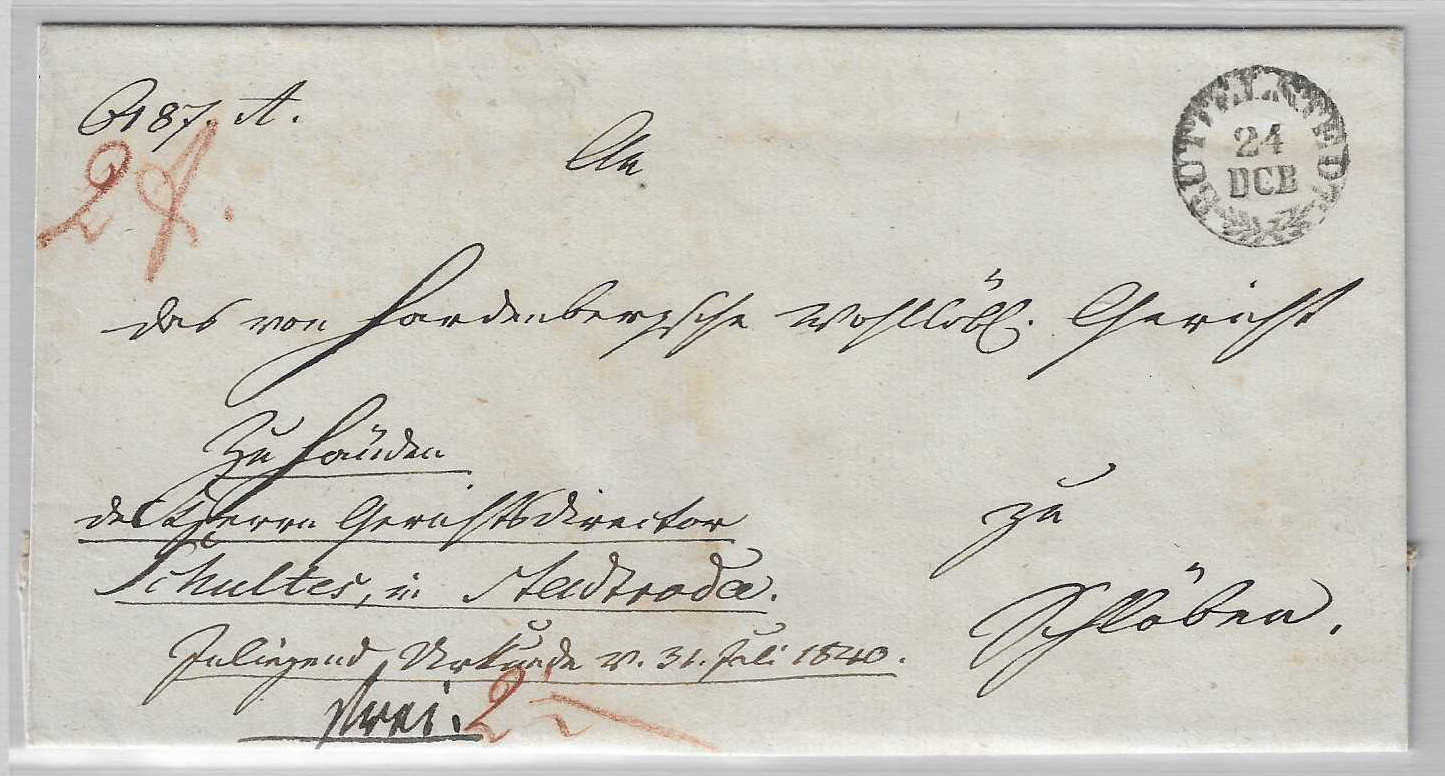 187. A.
An
BUTTELSTEDT
24
DCB
das von Hardenbergsche Wohllöbl. Gericht
Zu Händen
des Herrn Gerichtsdirector
Schultes, in Stadtroda.
zu
Schlöben.
Inliegend Urkunde v. 31. Juli 1840.
frei. 2